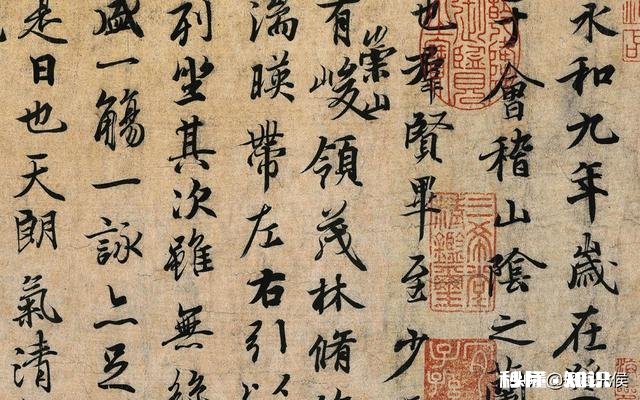 永和九年歲在
于會稽山陰之蘭
也羣賢畢至少
有崇山峻領茂林脩
湍暎帶左右引以
列坐其次雖無絲
盛一觴一詠亦足
是日也天朗氣清
三希堂精鑑璽
宜子孫